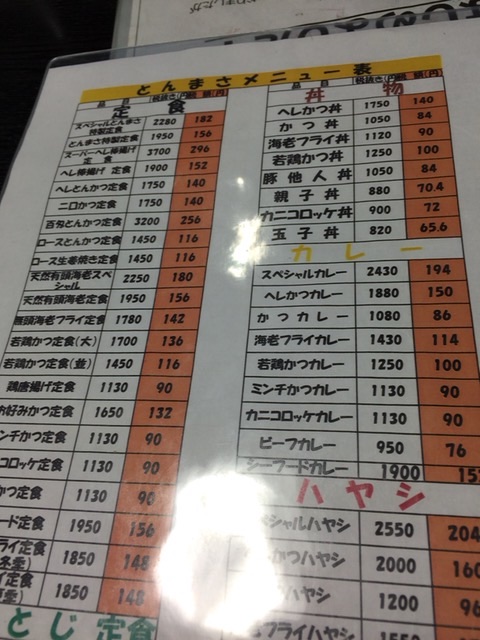 とんまさメニュー表
品目 税抜き(円) 増額(円)
定食
スペシャルとんまさ 2280 182
とんまさ特製定食 1950 156
スーパーヘレ棒揚げ定食 3700 296
ヘレ棒揚げ 定食 1900 152
ヘレとんかつ定食 1750 140
二口かつ定食 1750 140
百匁とんかつ定食 3200 256
ロースとんかつ定食 1450 116
ロース生姜焼き定食 1450 116
天然有頭海老スペシャル 2250 180
天然有頭海老定食 1950 156
無頭海老フライ定食 1780 142
若鶏かつ定食(大) 1700 136
若鶏かつ定食(並) 1450 116
鶏唐揚げ定食 1130 90
お好みかつ定食 1650 132
ンチかつ定食 1130 90
コロッケ定食 1130 90
かつ定食 1130 90
ード定食 1950 156
ライ定食 1850 148
イ定食 1850 148
とじ定食
品目 税抜き(円) (円)
丼物
ヘレかつ丼 1750 140
かつ丼 1050 84
海老フライ丼 1120 90
若鶏かつ丼 1250 100
豚他人丼 1050 84
親子丼 880 70.4
カニコロッケ丼 900 72
玉子丼 820 65.6
カレー
スペシャルカレー 2430 194
ヘレかつカレー 1880 150
かつカレー 1080 86
海老フライカレー 1430 114
若鶏かつカレー 1250 100
ミンチかつカレー 1130 90
カニコロッケカレー 1130 90
ビーフカレー 950 76
シーフードカレー 1900 15
ハヤシ
ペシャルハヤシ 2550 204
かつハヤシ 2000 160
ハヤシ 1200 96
フライハヤシ